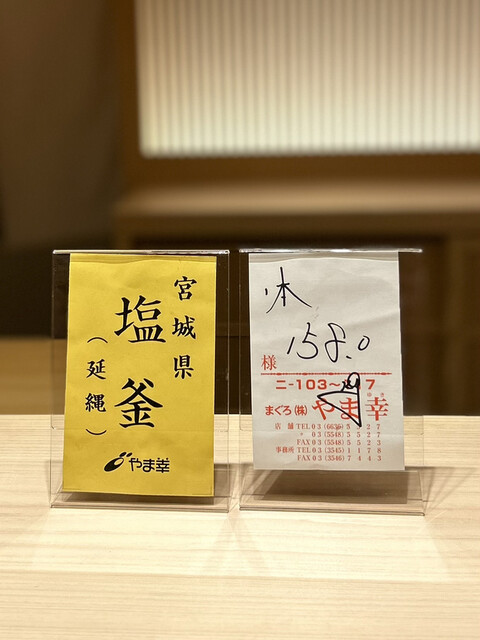 宮城県
塩釜
（延縄）
やま幸
158.0
様
ニ-103〜
まぐろ（株）やま幸
店舗 TEL03(6636)5527
〃 03(5548)5527
FAX03(5548)5523
事務所 TEL03(3545)1178
FAX03(3546)7443